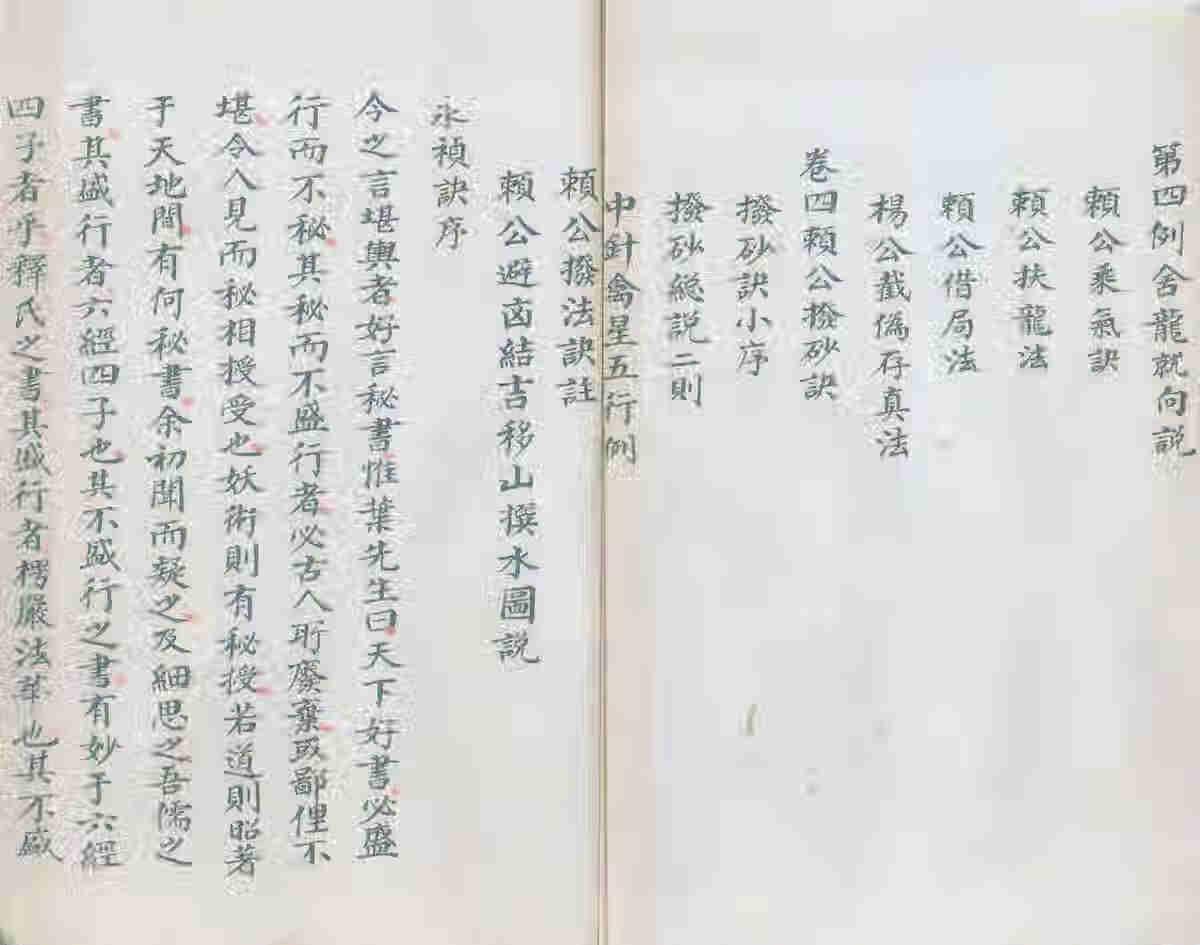 第四例舍龍就向説
賴公乘氣訣
賴公扶龍法
賴公借局法
楊公截偽存真法
卷四賴公撥砂訣
撥砂訣小序
撥砂總説二則
中針禽星五行例
賴公撥法訣註
賴公避凶結吉移山撰水圖説
永禎訣序
今之言堪輿者好言秘書惟葉先生曰天下好書必盛
行而不秘其秘而不盛行者必古人所廢棄或鄙俚不
堪令人見而秘相授受也妖術則有秘授若道則昭著
于天地間有何秘書余初聞而疑之及細思之吾儒之
書其盛行者六經四子也其不盛行之書有妙于六經
四子者乎釋氏之書其盛行者楞嚴法華也其不盛